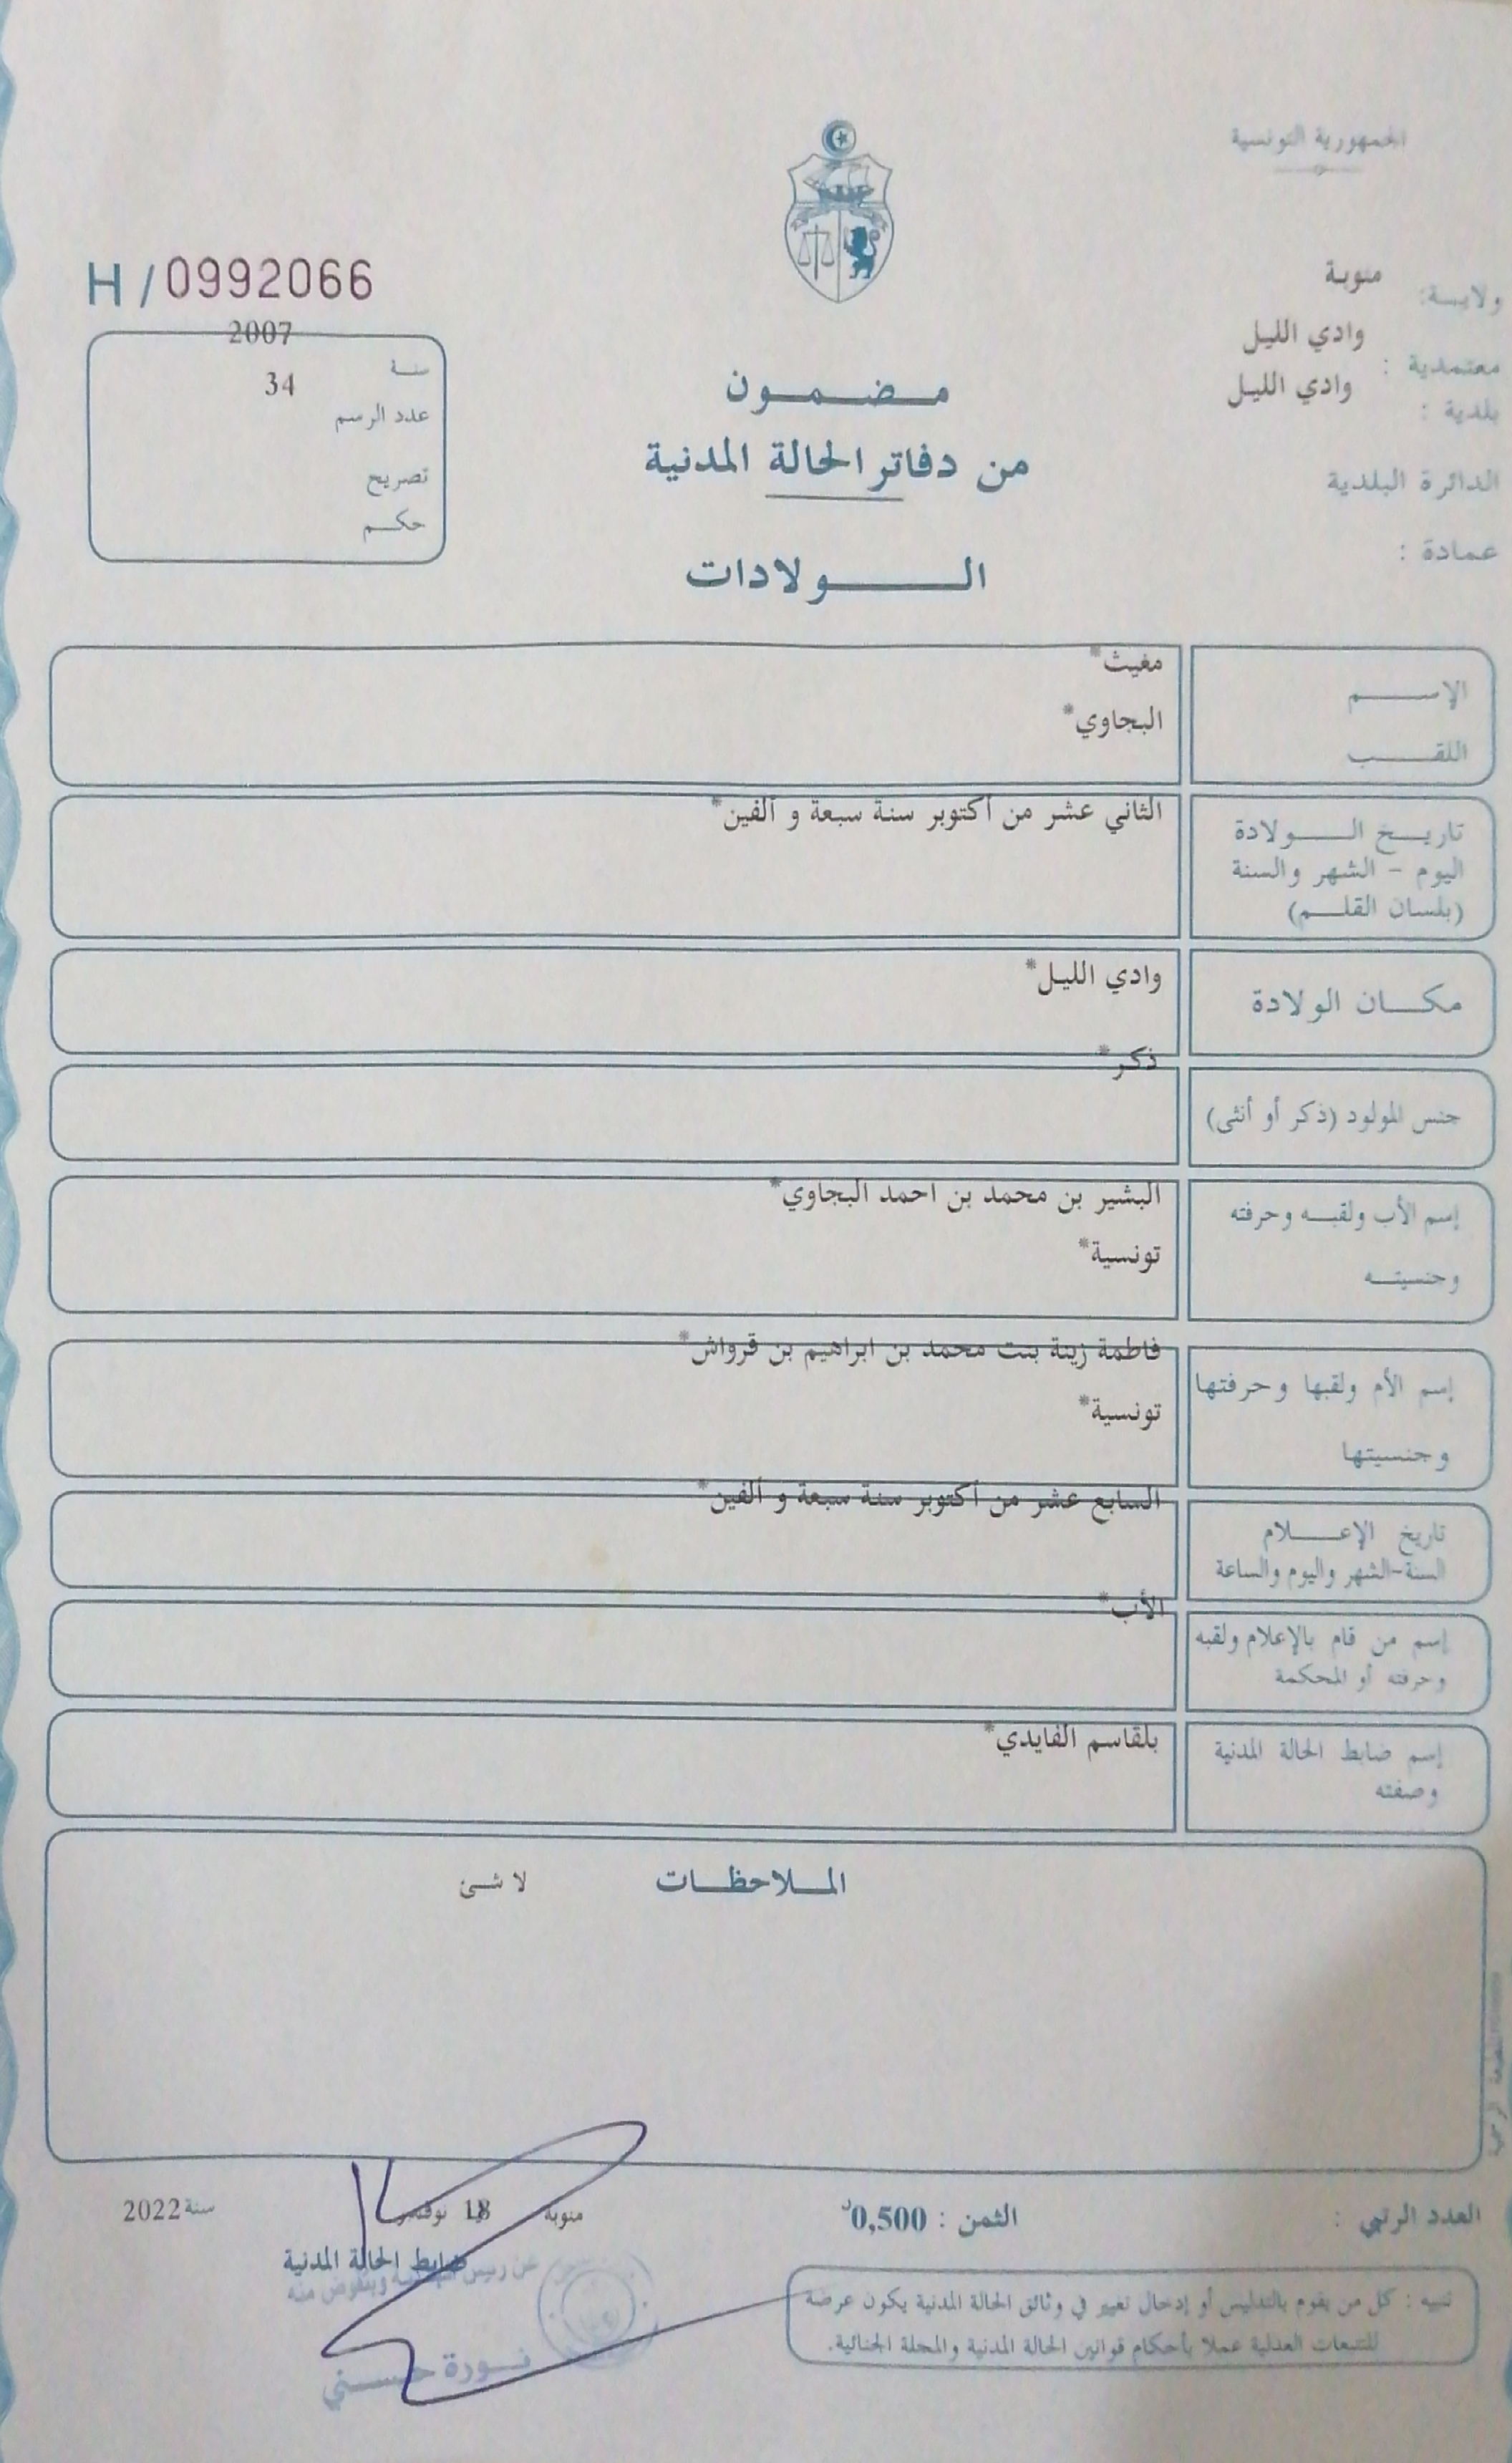 الجمهورية التونسية
ولايـــة: منوبة
معتمدية : وادي الليل
بلدية : وادي الليل
الدائرة البلدية
عمادة :
مـضـمـون
من دفاتر الحالة المدنية
الــولادات
H / 0992066
سنة 2007
عدد الرسم 34
تصريح
حكـم
الإســـم مغيث*
اللقـــب البجاوي*
تاريـخ الــولادة
اليوم - الشهر والسنة
(بلسان القلـم)
الثاني عشر من أكتوبر سنة سبعة و ألفين*
مكـــان الولادة وادي الليل*
جنس المولود (ذكر أو أنثى) ذكر*
إسم الأب ولقبـه وحرفته البشير بن محمد بن احمد البجاوي*
وجنسيتـه تونسية*
إسم الأم ولقبها وحرفتها فاطمة زينة بنت محمد بن ابراهيم بن قرواش*
وجنسيتها تونسية*
تاريخ الإعـــلام
السنة-الشهر واليوم والساعة
السابع عشر من أكتوبر سنة سبعة و ألفين*
إسم من قام بالإعلام ولقبه
وحرفته أو المحكمة
الأب*
إسم ضابط الحالة المدنية
وصفته
بلقاسم الفايدي*
المـلاحظـات لا شئ
العدد الرتبي :
الثمن : 0,500د
منوبة 18 نوفمبر سنة 2022
ضابط الحالة المدنية
عن رئيس البلدية وبتفويض منه
نـورة حسـني
تنبيه : كل من يقوم بالتدليس أو إدخال تغيير في وثائق الحالة المدنية يكون عرضة
للتتبعات العدلية عملا بأحكام قوانين الحالة المدنية والمجلة الجنائية.